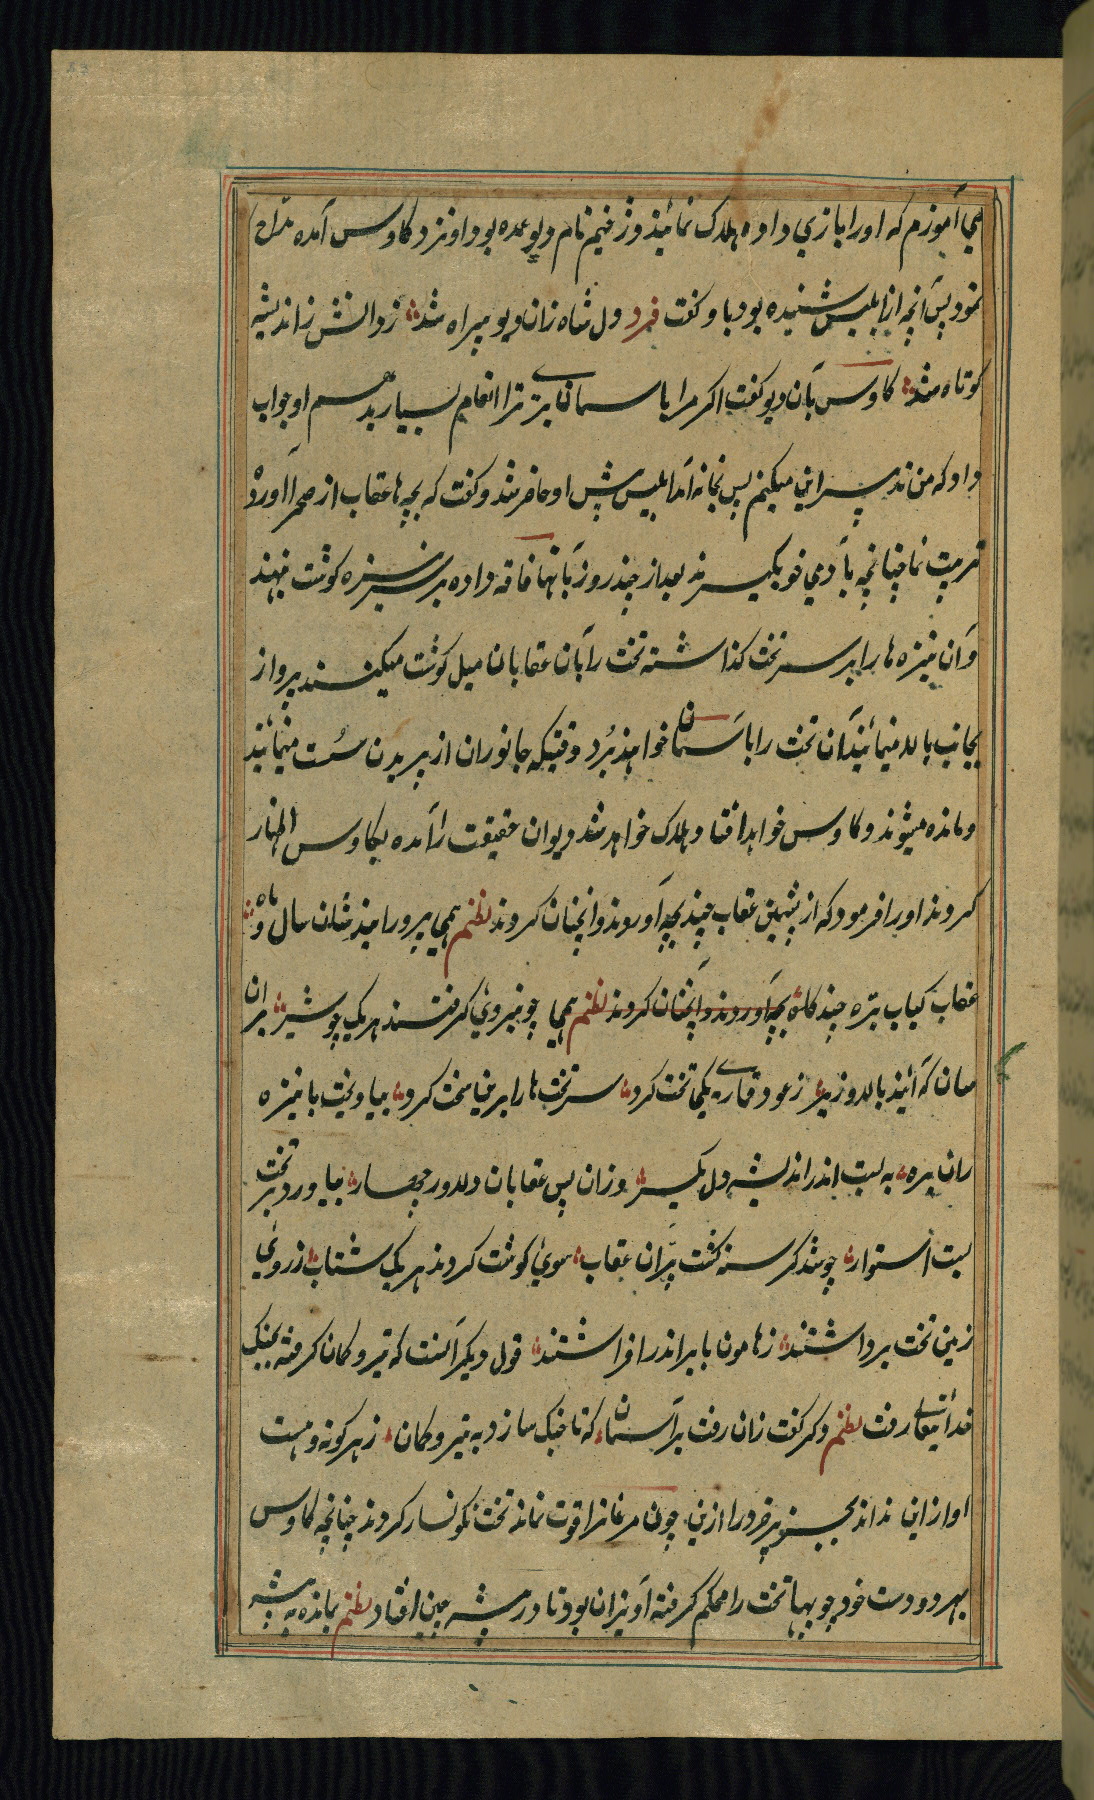 می آموزم که او را بازی داده هلاک نمائید وزخیم نام دیو عمده بود او نزد کاوس آمده مداح
نمود پس آنچه از ابلیس شنیده بود باو کفت فرد دل شاه زان دیو بیراه شد زدانش ز اندیشه
کوتاه شد کاوس بآن دیو کفت اکر مرا باسمان ببری ترا انعام بسیار بدهم او جواب
داد که من تدبیر این میکنم پس بخانه آمد ابلیس پیش او حاضر شد و کفت که بچه ها عقاب از صحرا آورده
تربیت نما چنانچه بآدمی خو بکیرند بعد از چند روز بآنها فاقه داده بر سر نیزه کوشت نهند
و آن نیزه ها را بر سر تخت کذاشته تخت را بآن عقابان میل کوشت میکنند پرواز
بجانب بالا مینمائید آن تخت را باسمان خواهند برد وقتیکه جانوران از پریدن سست مینمائید
و مانده میشوند و کاوس خواهد افتاد و هلاک خواهد شد دیوان حقیقت را آمده بکاوس اظهار
کردند او را فرمود که از نشیمن عقاب چند بچه آوردند و آنچنان کردند نظم همی پرورانیدشان سال و ماه
عقاب کباب بره چند کاه بچه آوردند و آنچنان کردند نظم همی چو نیروی کرفتند هر یک چو شیر بران
سان که آئید بالا و زیر ز عود قماری یکی تخت کرد سر تختها را بزرین سخت کرد بیاویخت با نیزه
ران بره به بست اندر اندیشه دل یکسره وزان پس عقابان دلاور چهار بیاورد بر تخت
بست استوار چو شد کرسنه کشت پران عقاب سوی کوشت کردند هر یک شتاب ز روی
زمین تخت برداشتند ز هامون بابر اندر افراشتند قول دیکر آنست که تیر و کمان کرفته بجنک
خدائیتعالی رفت نظم دکر کفت زان رفت بر آسمان که تا جنک سازد به تیر و کمان ز هر کونه هست
آواز این نداند بجز پر خرد راز این چون مرغانرا قوت نماند تخت نکونسار کردند چنانچه کاوس
بهر دو دست خود چوبهای تخت را محکم کرفته آویزان بود تا در بیشه چین افتاد نظم بمانده به بیشه